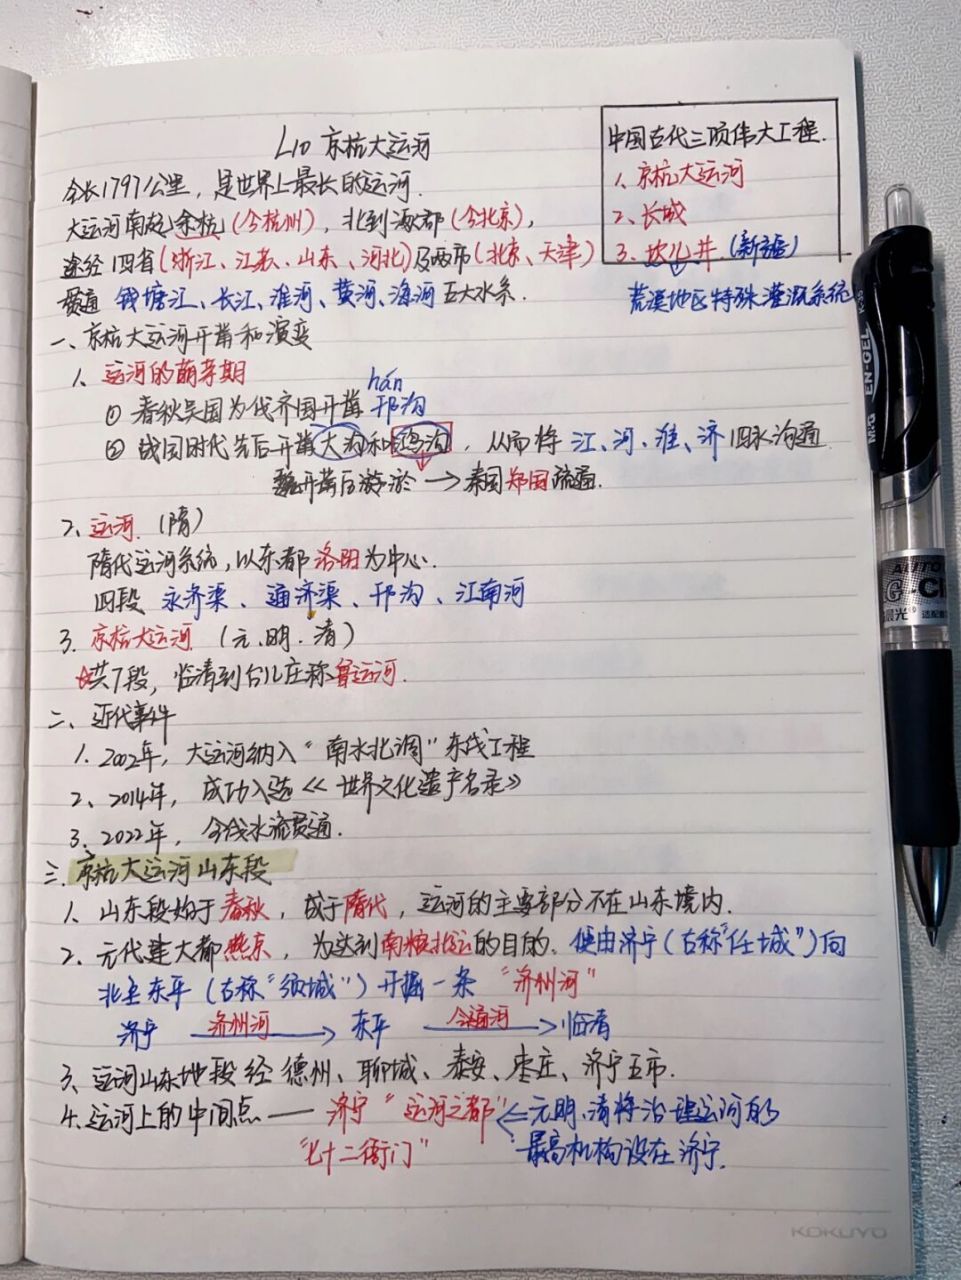 L10 京杭大运河
全长1797公里，是世界上最长的运河.
大运河南起余杭(今杭州)，北到涿郡(今北京)，
途经四省(浙江、江苏、山东、河北)及两市(北京、天津)
贯通 钱塘江、长江、淮河、黄河、海河五大水系.
中国古代三项伟大工程.
1、京杭大运河
2、长城
3、坎儿井.(新疆)
荒漠地区特殊灌溉系统
一、京杭大运河开凿和演变
1、运河的萌芽期
hán
① 春秋吴国为伐齐国开凿 邗沟
② 战国时代先后开凿大沟和鸿沟，从而将 江、河、淮、济 四水沟通
魏开凿后淤 → 秦国郑国疏通.
2、运河.(隋)
隋代运河系统，以东都洛阳为中心.
四段 永济渠、通济渠、邗沟、江南河
3. 京杭大运河 (元.明.清)
共7段，临清到台儿庄称鲁运河.
二、近代事件
1.2002年，大运河纳入“南水北调”东线工程
2、2014年，成功入选《世界文化遗产名录》
3.2022年，全线水流贯通.
三.京杭大运河山东段
1、山东段始于春秋，成于隋代，运河的主要部分不在山东境内.
2、元代建大都燕京，为达到南粮北运的目的. 便由济宁(古称“任城”)向
北至东平(古称“须城”)开掘一条 “济州河”
济宁 济州河→ 东平 会通河→临清
3、运河山东地段经德州、聊城、泰安、枣庄、济宁五市.
4.运河上的中间点——济宁“运河之都”⇐元.明.清将治理运河的
“七十二衙门” 最高机构设在济宁.
KOKUYO
M&G
EN-GEL
AUTO
晨光®